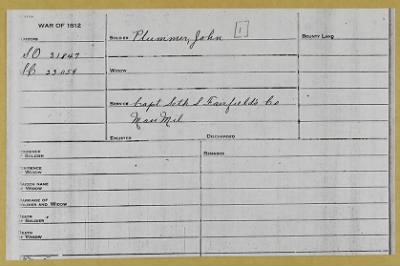 WAR OF 1812
SOLDIER Plummer, John 1
BOUNTY LAND
SO 21847
SC 23059
WIDOW
SERVICE Capt Seth S Fairfield's Co
Mass Mil
ENLISTED DISCHARGED
RESIDENCE OF SOLDIER
REMARKS
RESIDENCE OF WIDOW
MAIDEN NAME OF WIDOW
MARRIAGE OF SOLDIER AND WIDOW
DEATH OF SOLDIER
DEATH OF WIDOW